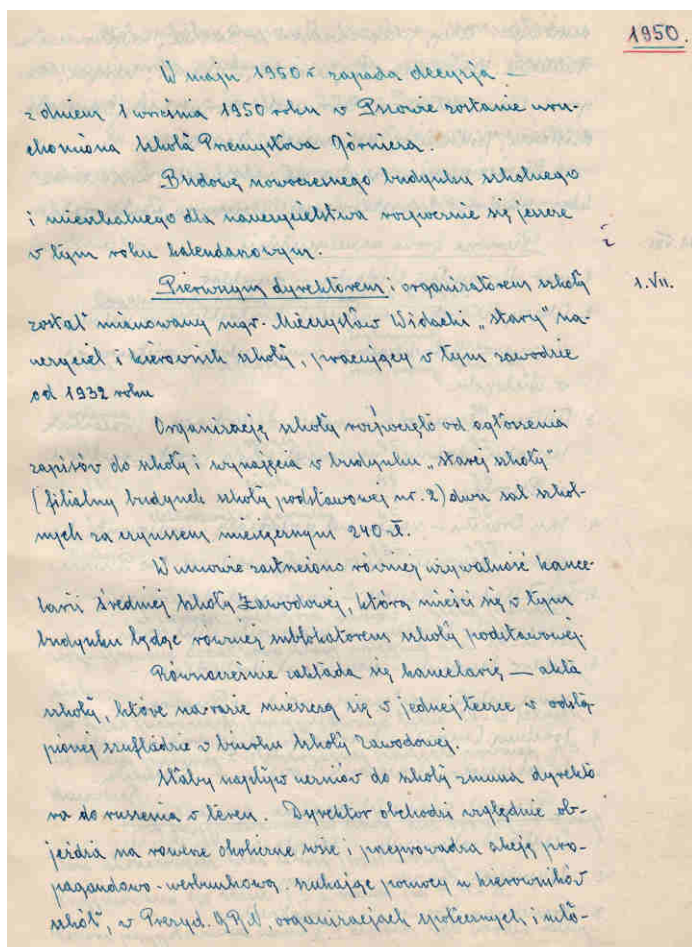 1950.
W maju 1950 r zapada decyzja —
z dniem 1 września 1950 roku w Pszowie zostanie uru-
chomiona Szkoła Przemysłowa Górnicza.
Budowę nowoczesnego budynku szkolnego
i mieszkalnego dla nauczycielstwa rozpocznie się jeszcze
w tym roku kalendarzowym.
Pierwszym dyrektorem i organizatorem szkoły
1. VII.
został mianowany mgr. Mieczysław Widacki „stary" na-
uczyciel i kierownik szkoły, pracujący w tym zawodzie
od 1932 roku
Organizację szkoły rozpoczęto od ogłoszenia
zapisów do szkoły i wynajęcia w budynku „starej szkoły"
(filialny budynek szkoły podstawowej nr. 2) dwu sal szkol-
nych za czynszem miesięcznym 240 zł.
W umowie zastrzeżono również używalność kance-
larii Średniej Szkoły Zawodowej, która mieści się w tym
budynku będąc również sublokatorem szkoły podstawowej.
Równocześnie zakłada się kancelarię — akta
szkoły, które na razie mieszczą się w jednej teczce w odstą-
pionej szufladzie w biurku Szkoły Zawodowej.
Słaby napływ uczniów do szkoły zmusza dyrekto
ra do ruszenia w teren. Dyrektor obchodzi względnie ob-
jeżdża na rowerze okoliczne wsie i przeprowadza akcję pro-
pagandowo-werbunkową szukając pomocy u kierowników
szkół, w Prezyd. G.R.N, organizacjach społecznych i mło-